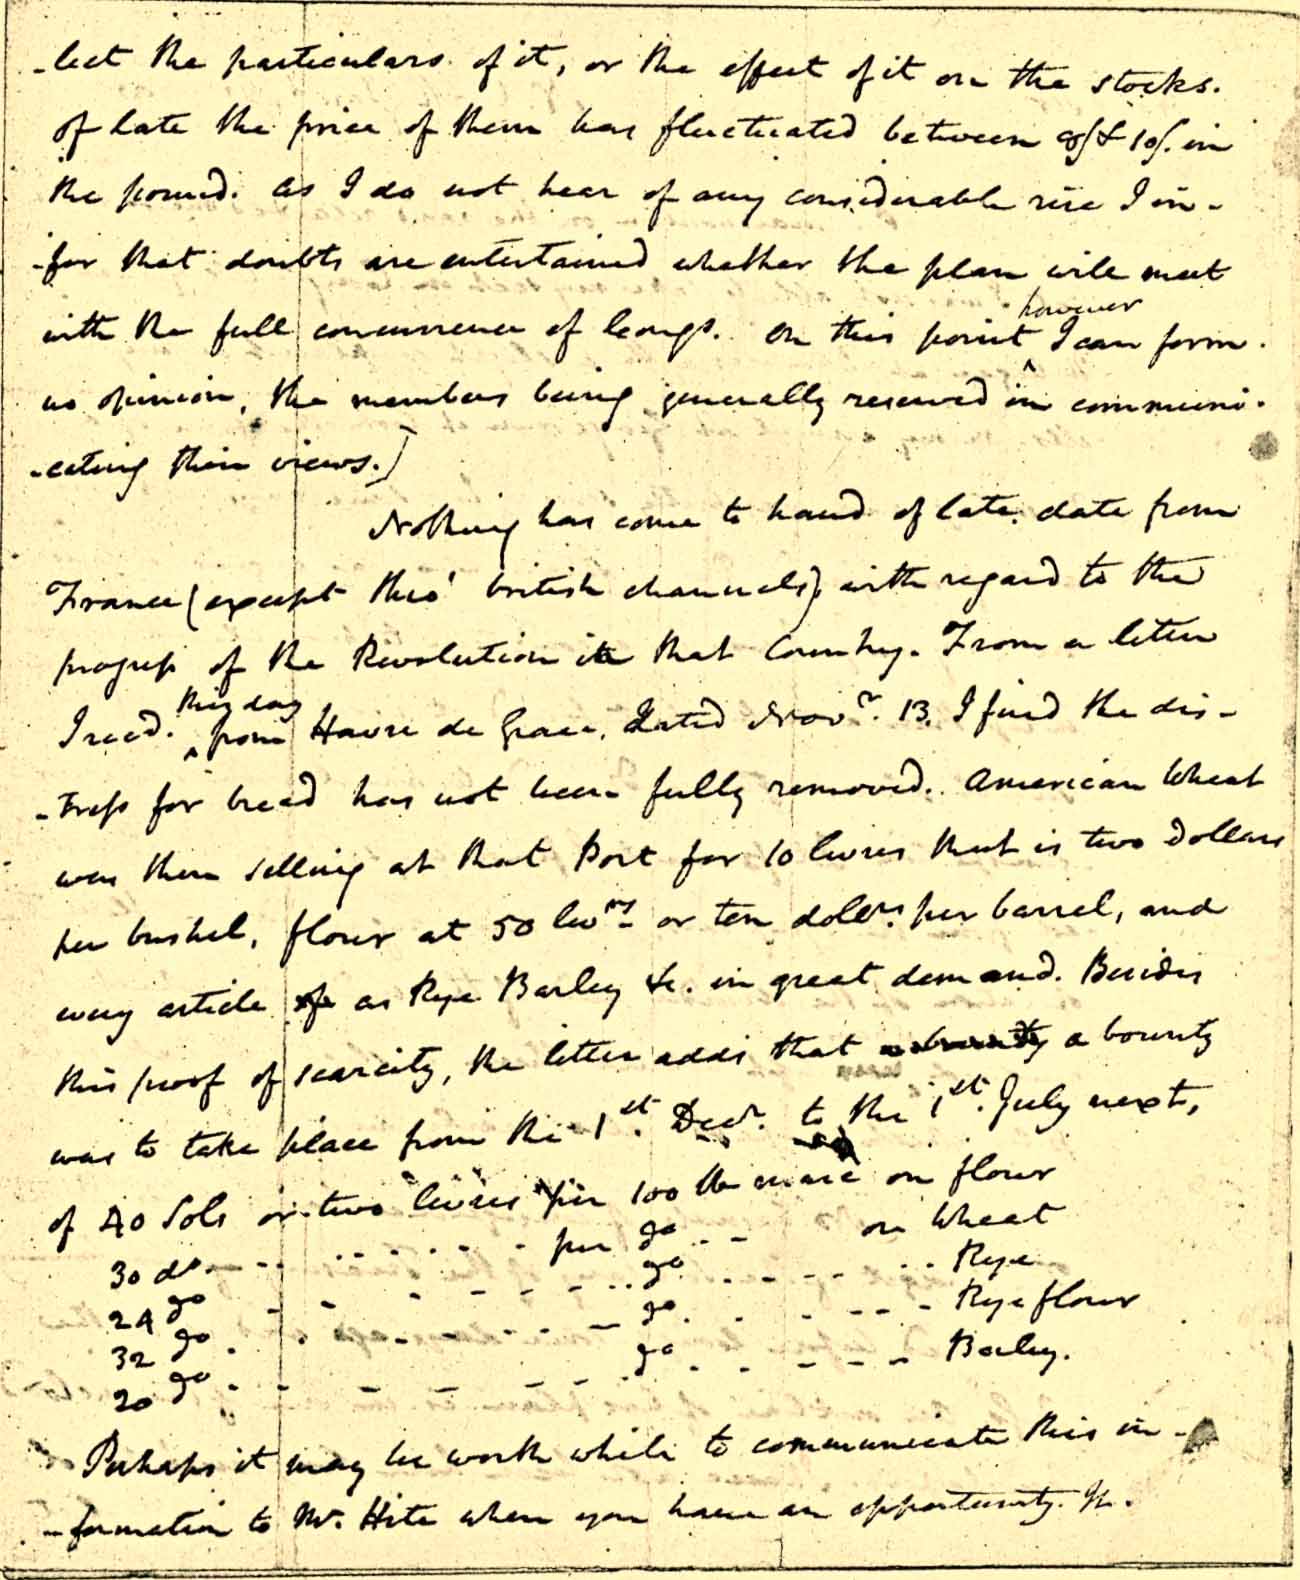 -lect the particulars of it, or the effect of it on the stocks.
of late the price of them has fluctuated between 8/ & 10/. in
the pound. As I do not hear of any considerable rise I in-
-fer that doubts are entertained whether the plan will meet
with the full concurrence of Congs. On this point however I can form
no opinion, the members being generally reserved in communi-
-cating their views.]
Nothing has come to hand of late date from
France (except thro' british channels) with regard to the
progress of the Revolution in that Country. From a letter
I recd. this day from Havre de Grace, dated Novr. 13. I find the dis-
-tress for bread has not been fully removed. American Wheat
was then selling at that Port for 10 livres that is two Dollars
per bushel, flour at 50 livrs or ten dollrs. per barrel, and
every article of as Rye Barley &c. in great demand. Besides
this proof of scarcity, the letter adds that a bounty a bounty
was to take place from the 1st. Decr. to the 1st. July next,
of 40 Sols or two livres per 100 lb on flour
30 do per do on Wheat
24 do do Rye
32 do do Rye flour
20 do do Barley.
Perhaps it may be worth while to communicate this in-
-formation to Mr. Hite when you have an opportunity.